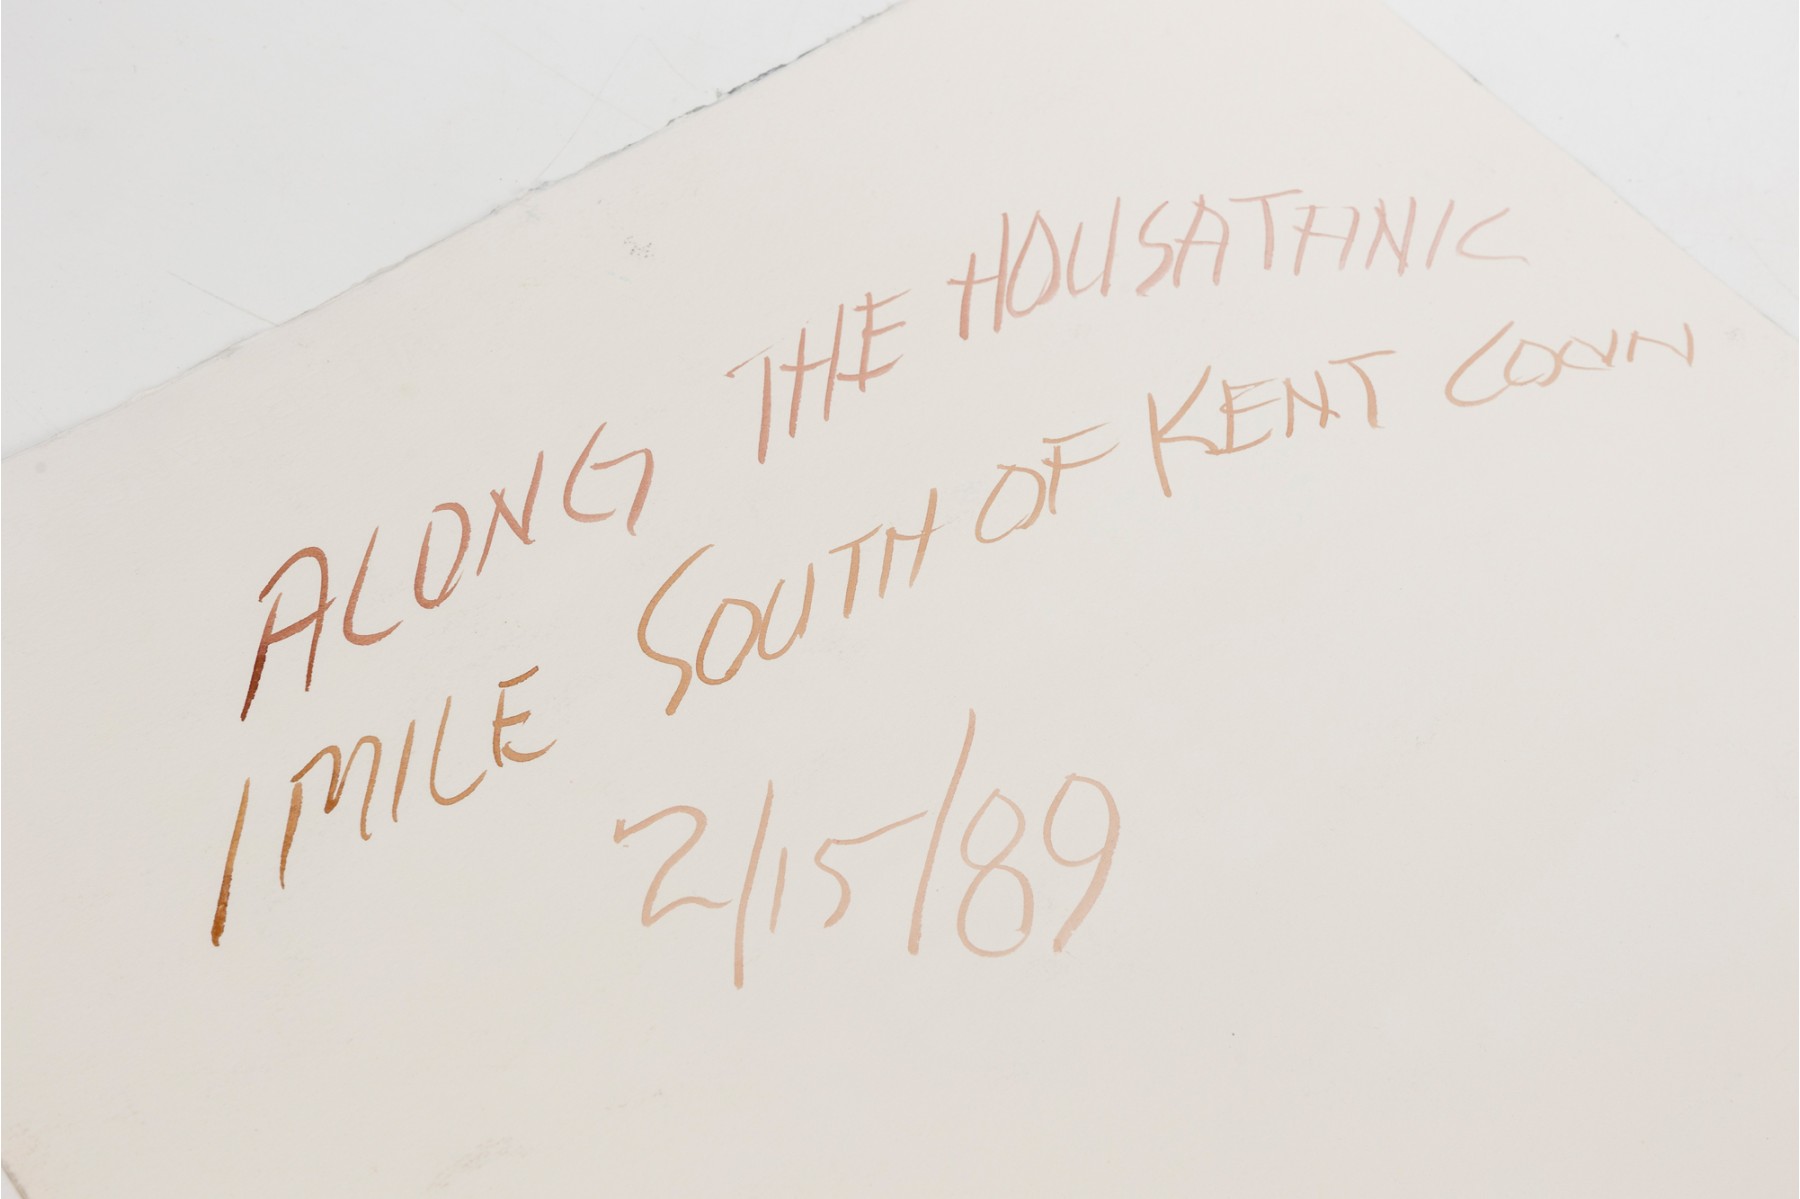 ALONG THE HOUSATANIC
1 MILE SOUTH OF KENT CONN
2/15/89